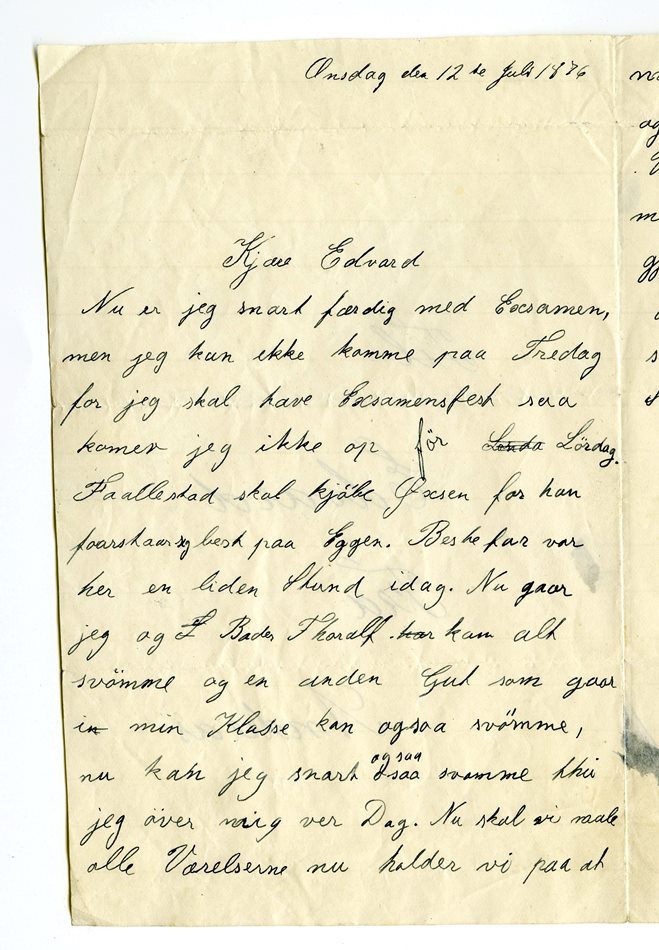 Onsdag den 12te Juli 1876
Kjære Edvard
Nu er jeg snart færdig med Exsamen,
men jeg kan ikke komme paa Fredag
for jeg skal have Exsamensfest saa
komer jeg ikke op för Lördag.
Faallestad skal kjöbe Öxsen for han
foorstaar sig best paa Eggen. Bestefar var
her en liden Stund idag. Nu gaar
jeg og Bader Thoralf kan alt
svömme og en anden Gut som gaar
in min Klasse kan ogsaa svömme,
nu kan jeg snart ogsaa svømme thi
jeg över mig ver Dag. Nu skal vi male
alle Værelserne nu holder vi paa at